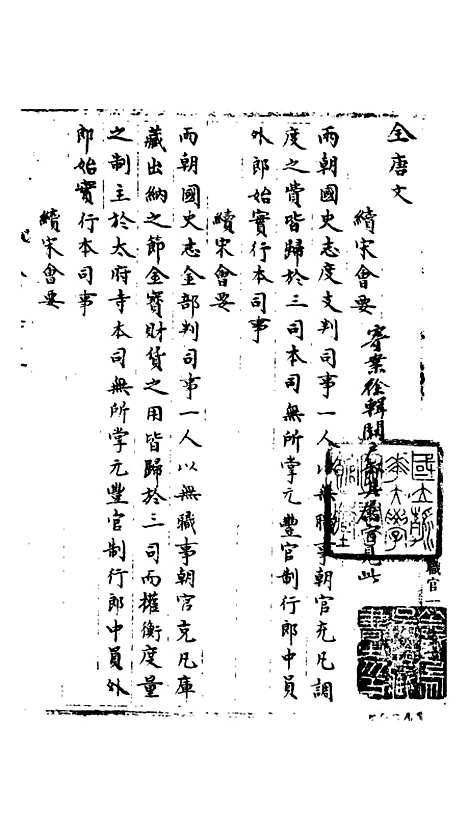 全唐文
續宋會要
寄案徐輯闕
見此
職官一
兩朝國史志度支判司事一人以無職事朝官充凡調
度之費皆歸於三司本司無所掌元豐官制行郎中員
外郎始實行本司事
續宋會要
兩朝國史志金部判司事一人以無職事朝官充凡庫
藏出納之節金寶財貨之用皆歸於三司而權衡度量
之制主於太府寺本司無所掌元豐官制行郎中員外
郎始實行本司事
續宋會要